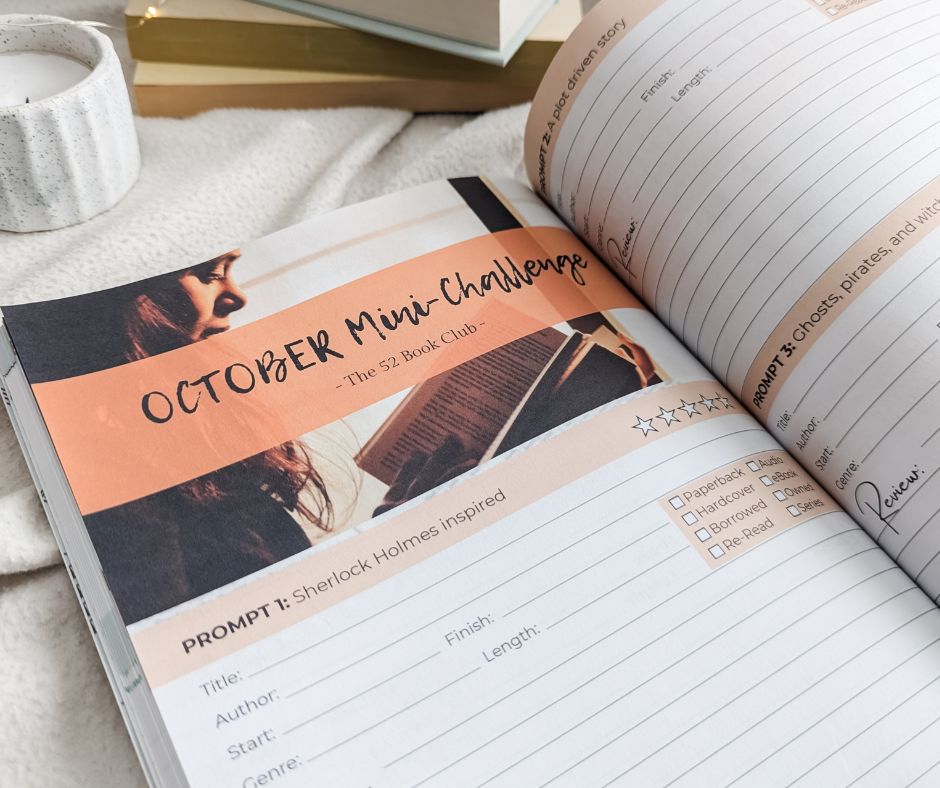 OCTOBER Mini-Challenge
- The 52 Book Club -
PROMPT 1: Sherlock Holmes inspired
Paperback Audio
Hardcover eBook
Borrowed Owned
Re-Read Series
Title:
Author: Finish:
Start: Length:
Genre:
PROMPT 2: A plot driven story
Finish:
Length:
Review:
PROMPT 3: Ghosts, pirates, and
Title:
Author:
Start:
Genre:
Review: